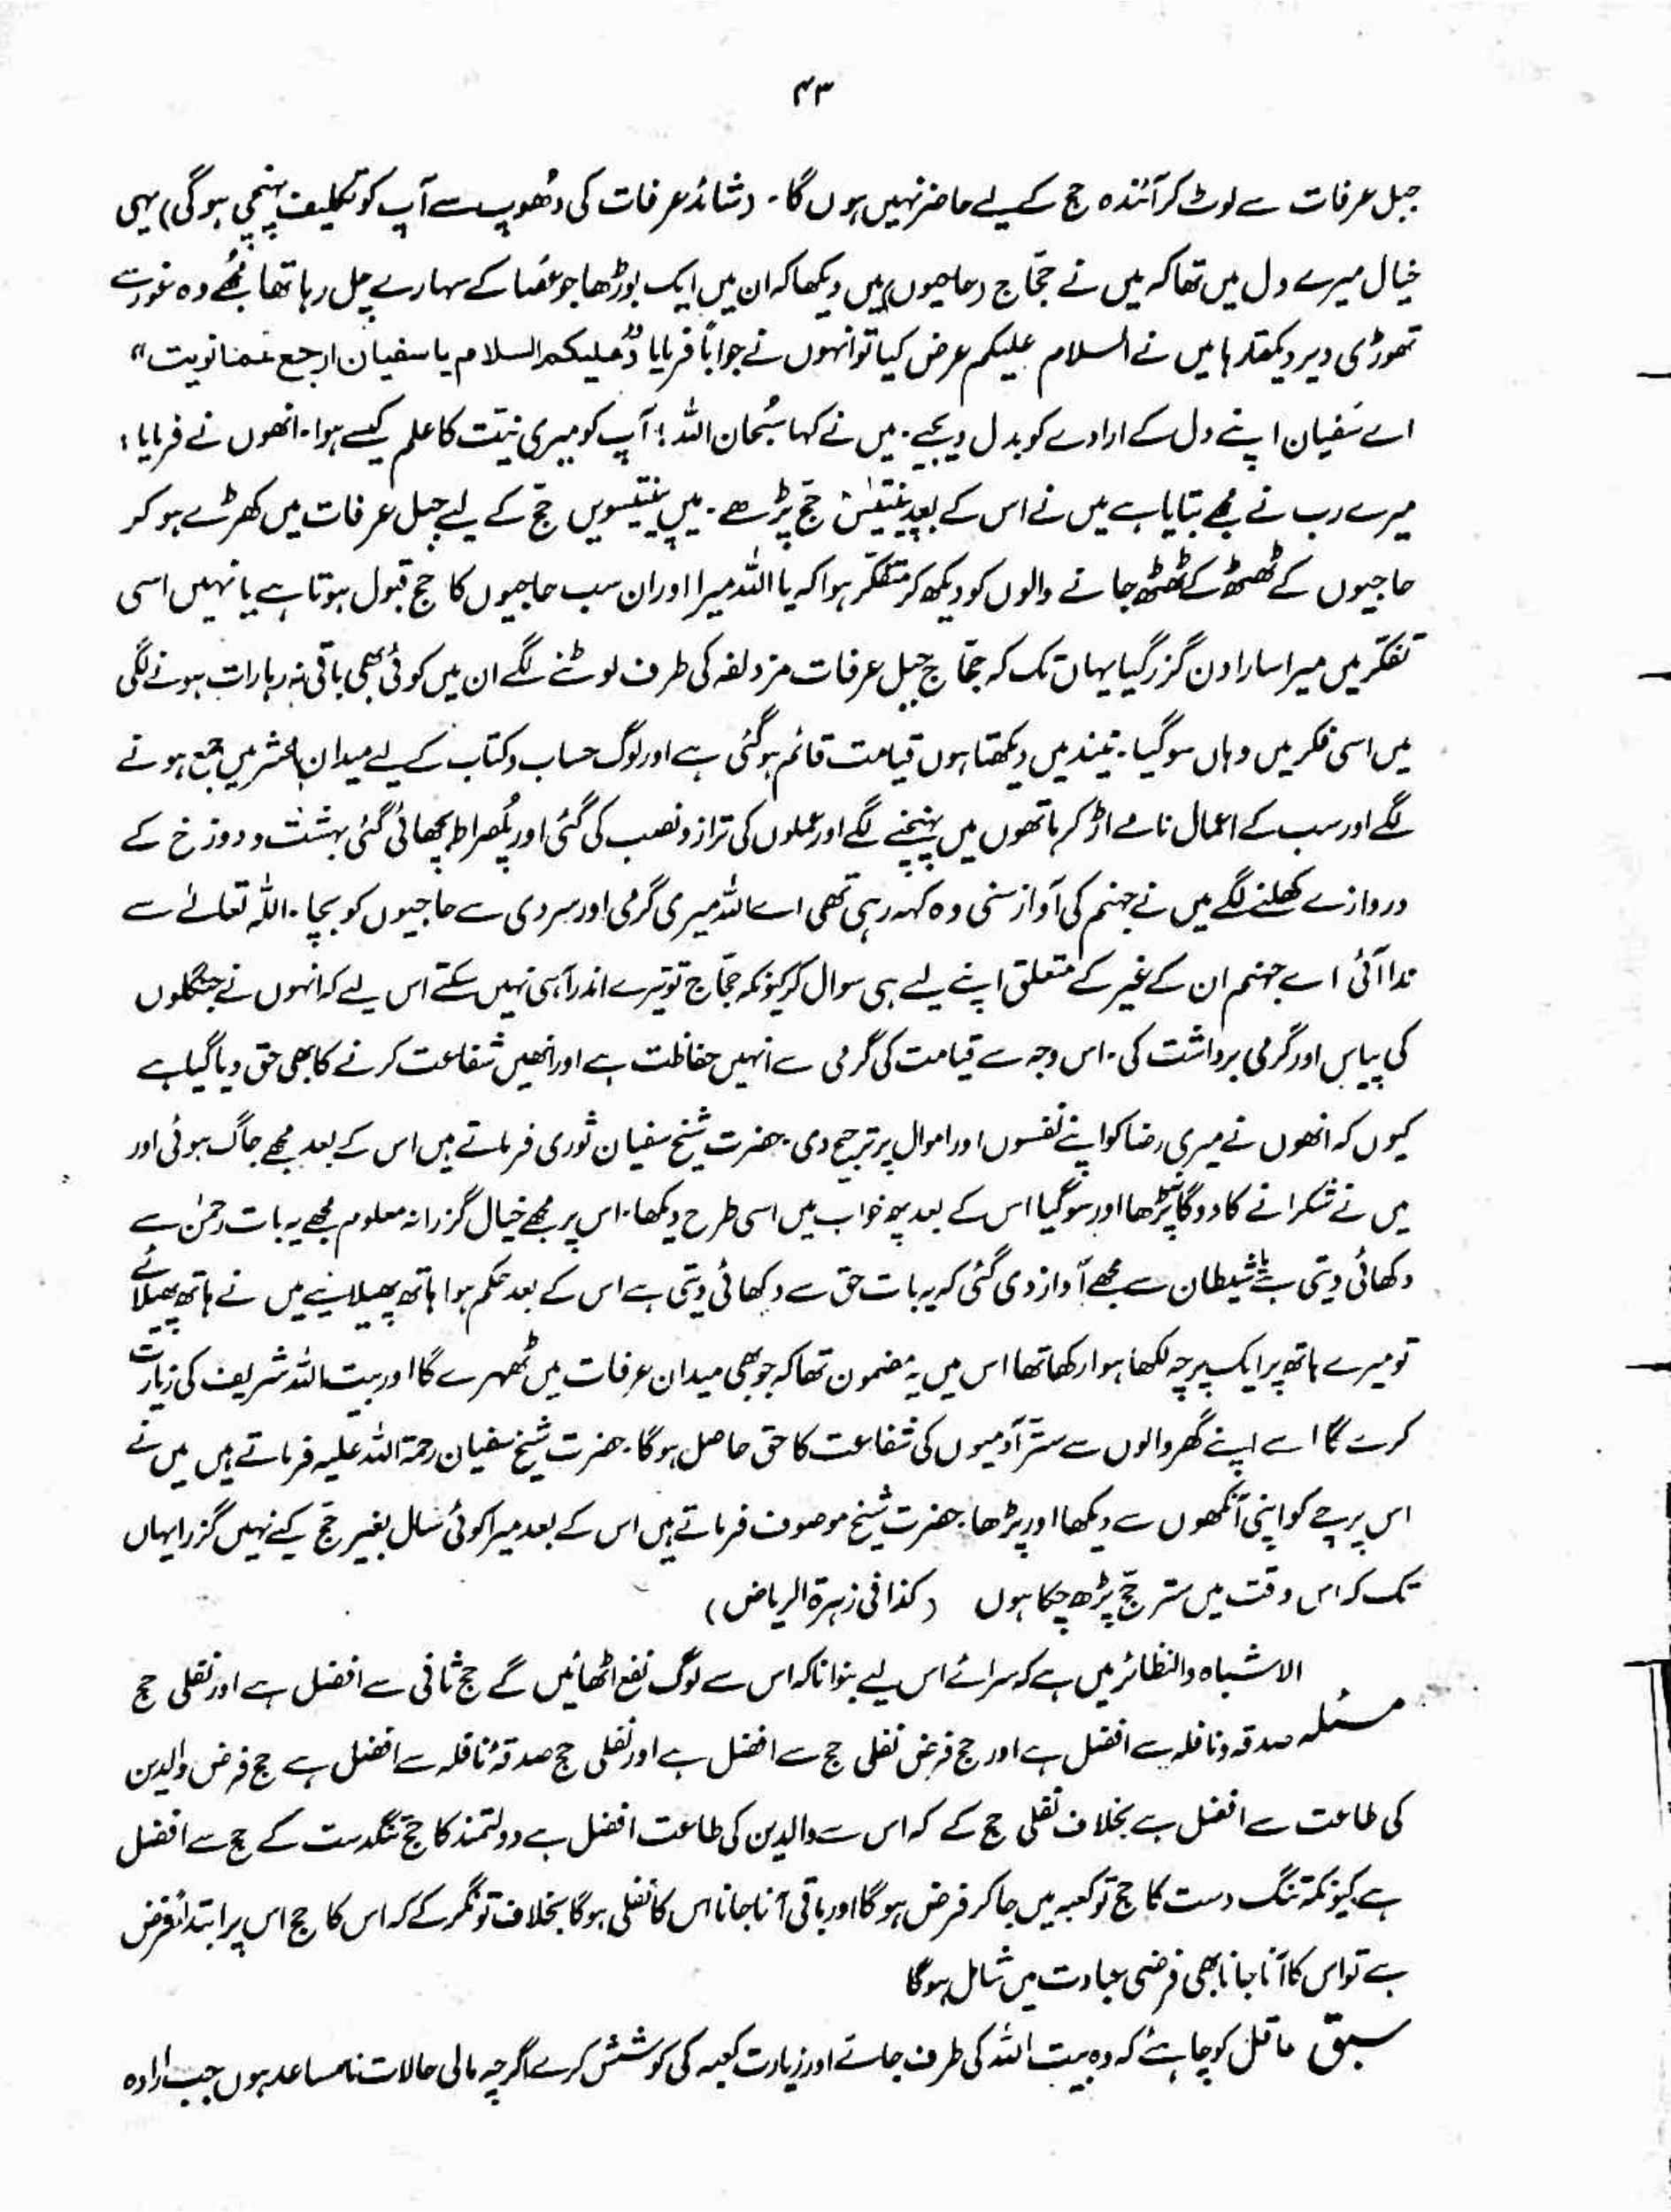 ۴۳
جبل عرفات سے لوٹ کر آئندہ حج کے لیے حاضر نہیں ہوں گا۔ (شائد عرفات کی دھوپ سے آپ کو تکلیف پہنچی ہوگی) یہی
خیال میرے دل میں تھا کہ میں نے حجّاج (حاجیوں) میں دیکھا کہ ان میں ایک بوڑھا جو عصا کے سہارے چل رہا تھا مجھے وہ غور سے
تھوڑی دیر دیکھتا رہا میں نے السلام علیکم عرض کیا تو انہوں نے جواباً فرمایا وعلیکم السلام یا سفیان ارجع عما نویت"
اے سفیان اپنے دل کے ارادے کو بدل دیجیے۔ میں نے کہا سُبحان اللہ! آپ کو میری نیّت کا علم کیسے ہوا۔ انھوں نے فرمایا:
میرے رب نے مجھے بتایا ہے میں نے اس کے بعد پینتیس حج پڑھے۔ میں پینتیسویں حج کے لیے جبل عرفات میں کھڑے ہو کر
حاجیوں کے ٹھٹھ کے ٹھٹھ جانے والوں کو دیکھ کر متفکّر ہوا کہ یا اللہ میرا اور ان سب حاجیوں کا حج قبول ہوتا ہے یا نہیں اسی
تفکّر میں میرا سارا دن گزر گیا یہاں تک کہ حجّاج جبل عرفات مزدلفہ کی طرف لوٹنے لگے ان میں کوئی بھی باقی نہ رہا رات ہونے لگی
میں اسی فکر میں وہاں سو گیا۔ نیند میں دیکھتا ہوں قیامت قائم ہو گئی ہے اور لوگ حساب و کتاب کے لیے میدان حشر میں جمع ہونے
لگے اور سب کے اعمال نامے اڑ کر ہاتھوں میں پہنچنے لگے اور عملوں کی ترازو نصب کی گئی اور پُلصراط بچھائی گئی بہشت و دوزخ کے
دروازے کھلنے لگے میں نے جہنم کی آواز سنی وہ کہہ رہی تھی اے اللہ میری گرمی اور سردی سے حاجیوں کو بچا۔ اللہ تعالےٰ سے
ندا آئی اے جہنم ان کے غیر کے متعلق اپنے لیے ہی سوال کر کیونکہ حجّاج تو تیرے اندر آ ہی نہیں سکتے اس لیے کہ انہوں نے جنگلوں
کی پیاس اور گرمی برداشت کی۔ اس وجہ سے قیامت کی گرمی سے انہیں حفاظت ہے اور انھیں شفاعت کرنے کا بھی حق دیا گیا ہے
کیوں کہ انھوں نے میری رضا کو اپنے نفسوں اور اموال پر ترجیح دی۔ حضرت شیخ سفیان ثوری فرماتے ہیں اس کے بعد مجھے جاگ ہوئی اور
میں نے شکرانے کا دوگانہ پڑھا اور سو گیا اس کے بعد پھر خواب میں اسی طرح دیکھا۔ اس پر مجھے خیال گزرا نہ معلوم مجھے یہ بات رحمٰن سے
دکھائی دیتی ہے یا شیطان سے مجھے آواز دی گئی کہ یہ بات حق سے دکھائی دیتی ہے اس کے بعد حکم ہوا ہاتھ پھیلائیے میں نے ہاتھ پھیلائے
تو میرے ہاتھ پر ایک پرچہ لکھا ہوا رکھا تھا اس میں یہ مضمون تھا کہ جو بھی میدان عرفات میں ٹھہرے گا اور بیت اللہ شریف کی زیارت
کرے گا اسے اپنے گھر والوں سے ستّر آدمیوں کی شفاعت کا حق حاصل ہوگا۔ حضرت شیخ سفیان رحمۃ اللہ علیہ فرماتے ہیں میں نے
اس پرچے کو اپنی آنکھوں سے دیکھا اور پڑھا۔ حضرت شیخ موصوف فرماتے ہیں اس کے بعد میرا کوئی سال بغیر حج کیے نہیں گزرا یہاں
تک کہ اس وقت میں ستر حج پڑھ چکا ہوں (کذا فی زہرۃ الریاض)
الاشباہ والنظائر میں ہے کہ سرائے اس لیے بنوانا کہ اس سے لوگ نفع اٹھائیں گے حج ثانی سے افضل ہے اور نفلی حج
مسئلہ صدقہ و نافلہ سے افضل ہے اور حج فرض نفلی حج سے افضل ہے اور نفلی حج صدقۂ نافلہ سے افضل ہے حج فرض والدین
کی طاعت سے افضل ہے بخلاف نفلی حج کے کہ اس سے والدین کی طاعت افضل ہے دولتمند کا حج تنگدست کے حج سے افضل
ہے کیونکہ تنگ دست کا حج تو کعبہ میں جا کر فرض ہوگا اور باقی آنا جانا اس کا نفلی ہوگا بخلاف تونگر کے کہ اس کا حج اس پر ابتداً فرض
ہے تو اس کا آنا جانا بھی فرضی عبادت میں شامل ہوگا
سبق عاقل کو چاہئے کہ وہ بیت اللہ کی طرف جائے اور زیارت کعبہ کی کوشش کرے اگرچہ مالی حالات نامساعد ہوں جب ارادہ